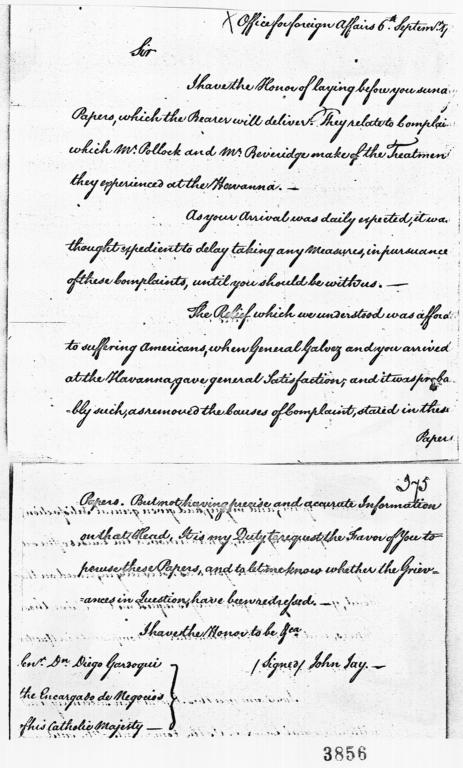 X Office for foreign Affairs 6th Septemr.
Sir
I have the Honor of laying before you
Papers, which the Bearer will deliver. They relate to Complai
which Mr. Pollock and Mr. Beveridge make of the Treatmen
they experienced at the Havanna. —
As your Arrival was daily expected, it wa
thought expedient to delay taking any Measures, in pursuance
of these Complaints, until you should be with us. —
The Relief which we understood was afford
to suffering Americans, when General Galvez and you arrived
at the Havanna, gave general Satisfaction; and it was proba
-bly such, as removed the Causes of Complaint, stated in these
Paper
375
Papers. But not having precise and accurate Information
on that Head, It is my Duty to request the Favor of You to
peruse these Papers, and to let me know whether the Griev-
-ances in Question, have been redressed. —
I have the Honor to be &ca
/Signed/ John Jay. —
Dn. Diego Gardoqui
the Encargado de Negocios
of his Catholic Majesty —
3856